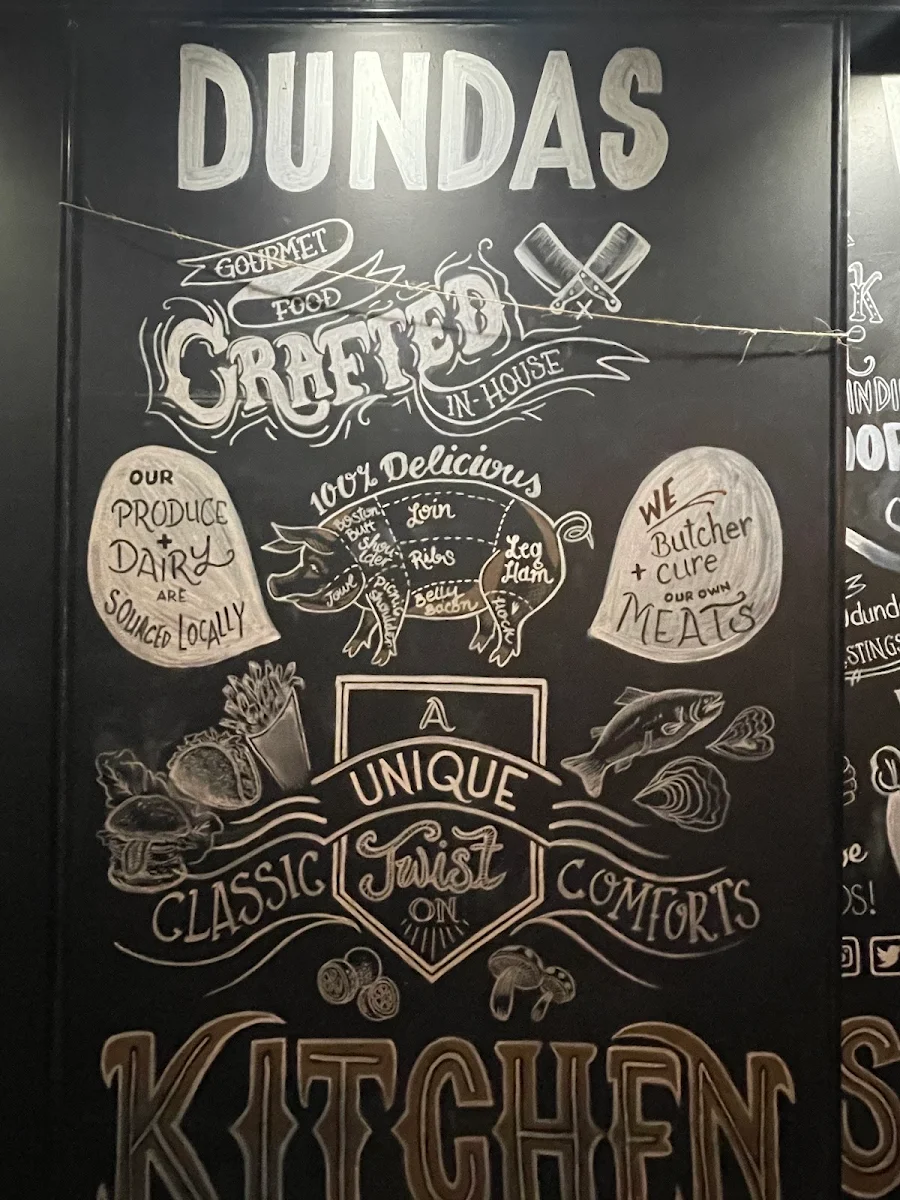 DUNDAS
GOURMET
FOOD
CRAFTED
IN-HOUSE
100% Delicious
OUR
PRODUCE
+
DAIRY
ARE
SOURCED LOCALLY
Boston
Butt
Shoul-
der
Jowl
Picnic
Shoulder
Loin
Ribs
Belly
Bacon
Leg
Ham
Hock
WE
Butcher
+ cure
OUR OWN
MEATS
A
UNIQUE
Twist
ON
CLASSIC
COMFORTS
KITCHEN